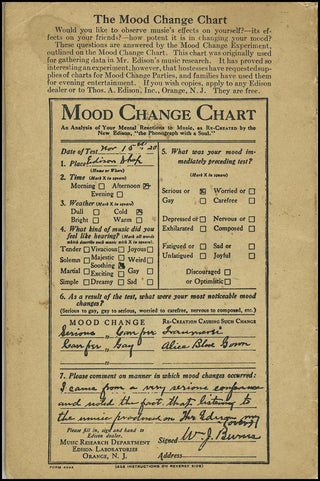 The Mood Change Chart
Would you like to observe music's effects on yourself?—its ef-
fects on your friend?—how potent it is in changing your mood?
These questions are answered by the Mood Change Experiment,
outlined on the Mood Change Chart. This chart was originally used
for gathering data in Mr. Edison's music research. It has proved so
interesting an experiment, however, that hostesses have requested sup-
plies of charts for Mood Change Parties, and families have used them
for evening entertainment. If you wish copies, apply to any Edison
dealer or to Thos. A. Edison, Inc., Orange, N. J. They are free.
MOOD CHANGE CHART
An Analysis of Your Mental Reactions to Music, as Re-Created by the
New Edison, "the Phonograph with a Soul."
Date of Test Nov 15 20
1. Place Edison Shop
(Home or Where)
2. Time (Mark X in square)
Morning Afternoon
Evening
3. Weather (Mark X in square)
Dull Cold
Bright Warm
4. What kind of music did you
feel like hearing? (Mark all words
which describe such music with X in square)
Tender Vivacious Joyous
Solemn Majestic Weird
Soothing
Martial Exciting Gay
Simple Dreamy Sad
5. What was your mood im-
mediately preceding test?
(Mark X in square)
Serious or Worried or
Gay Carefree
Depressed or Nervous or
Exhilarated Composed
Fatigued or Sad or
Unfatigued Joyful
Discouraged
or Optimistic
6. As a result of the test, what were your most noticeable mood
changes?
(Serious to gay, gay to serious, worried to carefree, nervous to composed, etc.)
MOOD CHANGE RE-CREATION CAUSING SUCH CHANGE
Serious
Gay Alice Blue Gown
7. Please comment on manner in which mood changes occurred:
I came from a very serious conference
and noted the fact that listening to
the music produced on the Edison
Please fill in, sign and hand to
Edison dealer.
MUSIC RESEARCH DEPARTMENT
EDISON LABORATORIES
ORANGE, N. J.
Signed Wm J. Burns
Address
FORM
(SEE INSTRUCTIONS ON REVERSE SIDE)